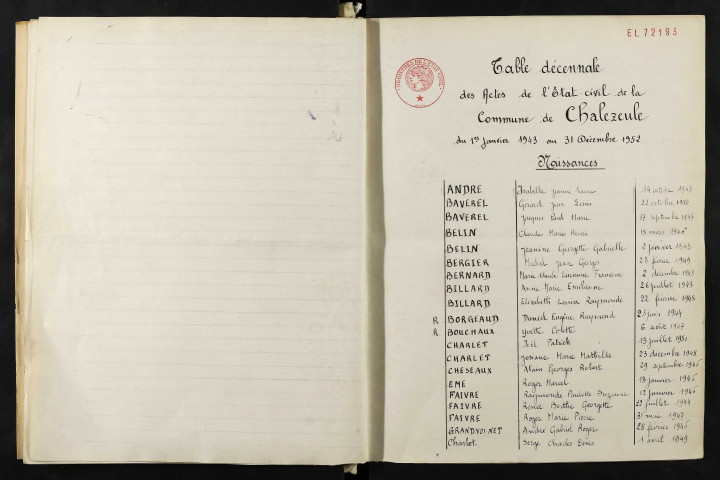 EL 72193
Table décennale
des Actes de l'Etat civil de la
Commune de Chalezeule
du 1er Janvier 1943 au 31 Décembre 1952
Naissances
ANDRE Isabelle Jeanne 14 octobre 1943
BAVEREL Gérard Jean Louis 22 octobre 1950
BAVEREL Jacques Paul Marie 17 septembre
BELIN Claude Marie Henri 18 mars 1946
BELIN Jeannine Georgette Gabrielle 2 janvier 1943
BERGIER Michel Jean Georges 23 février 1949
BERNARD Marie Claude Lucienne Francine 2 décembre 1943
BILLARD Anne Marie Emilienne 26 juillet 1947
BILLARD Elisabeth Louise Raymonde 22 février 1948
R BORGEAUD Daniel Eugène Raymond juin 1944
R BOUCHAUX Yvette Colette 6 août 1947
CHARLET Joël Patrick 19 juillet 1951
CHARLET Josiane Marie Mathilde 23 décembre 1948
CHESEAUX Alain Georges Robert 29 septembre 1946
EME Roger Marcel 18 janvier 1946
FAIVRE Raymonde Paulette Suzanne 12 janvier 1946
FAIVRE Renée Berthe Georgette 22 juillet 1944
FAIVRE Roger Marie Pierre 31 mai 1947
GRANDVOINET André Gabriel Roger 28 février 1946
Charlot Serge Charles Denis 1 avril 1949